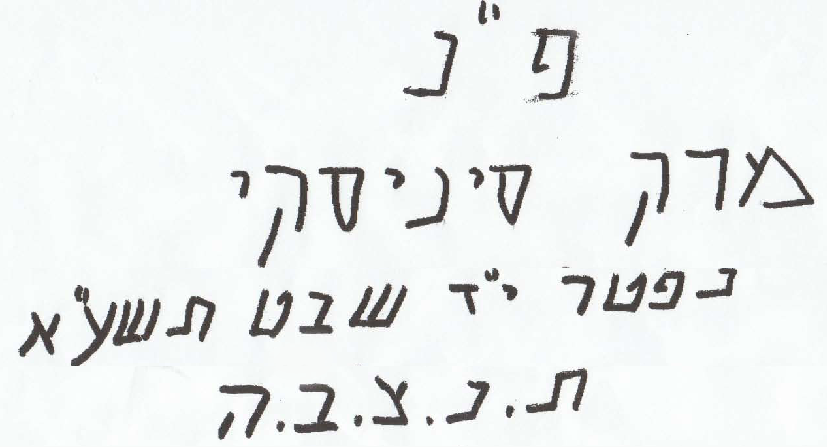 פ"נ
מרק סיניסקי
נפטר י"ד שבט תשע"א
ת.נ.צ.ב.ה